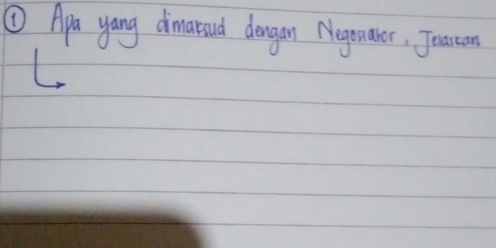 ① Apa yang dimaksud dengan Negosiator, Jelaskan